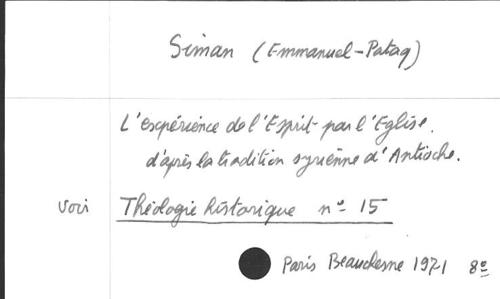 Siman (Emmanuel-Pataq)
L'expérience de l'Esprit par l'Eglise.
d'après la tradition syrienne d'Antioche.
voir Théologie historique nº 15
Paris Beauchesne 1971 8º